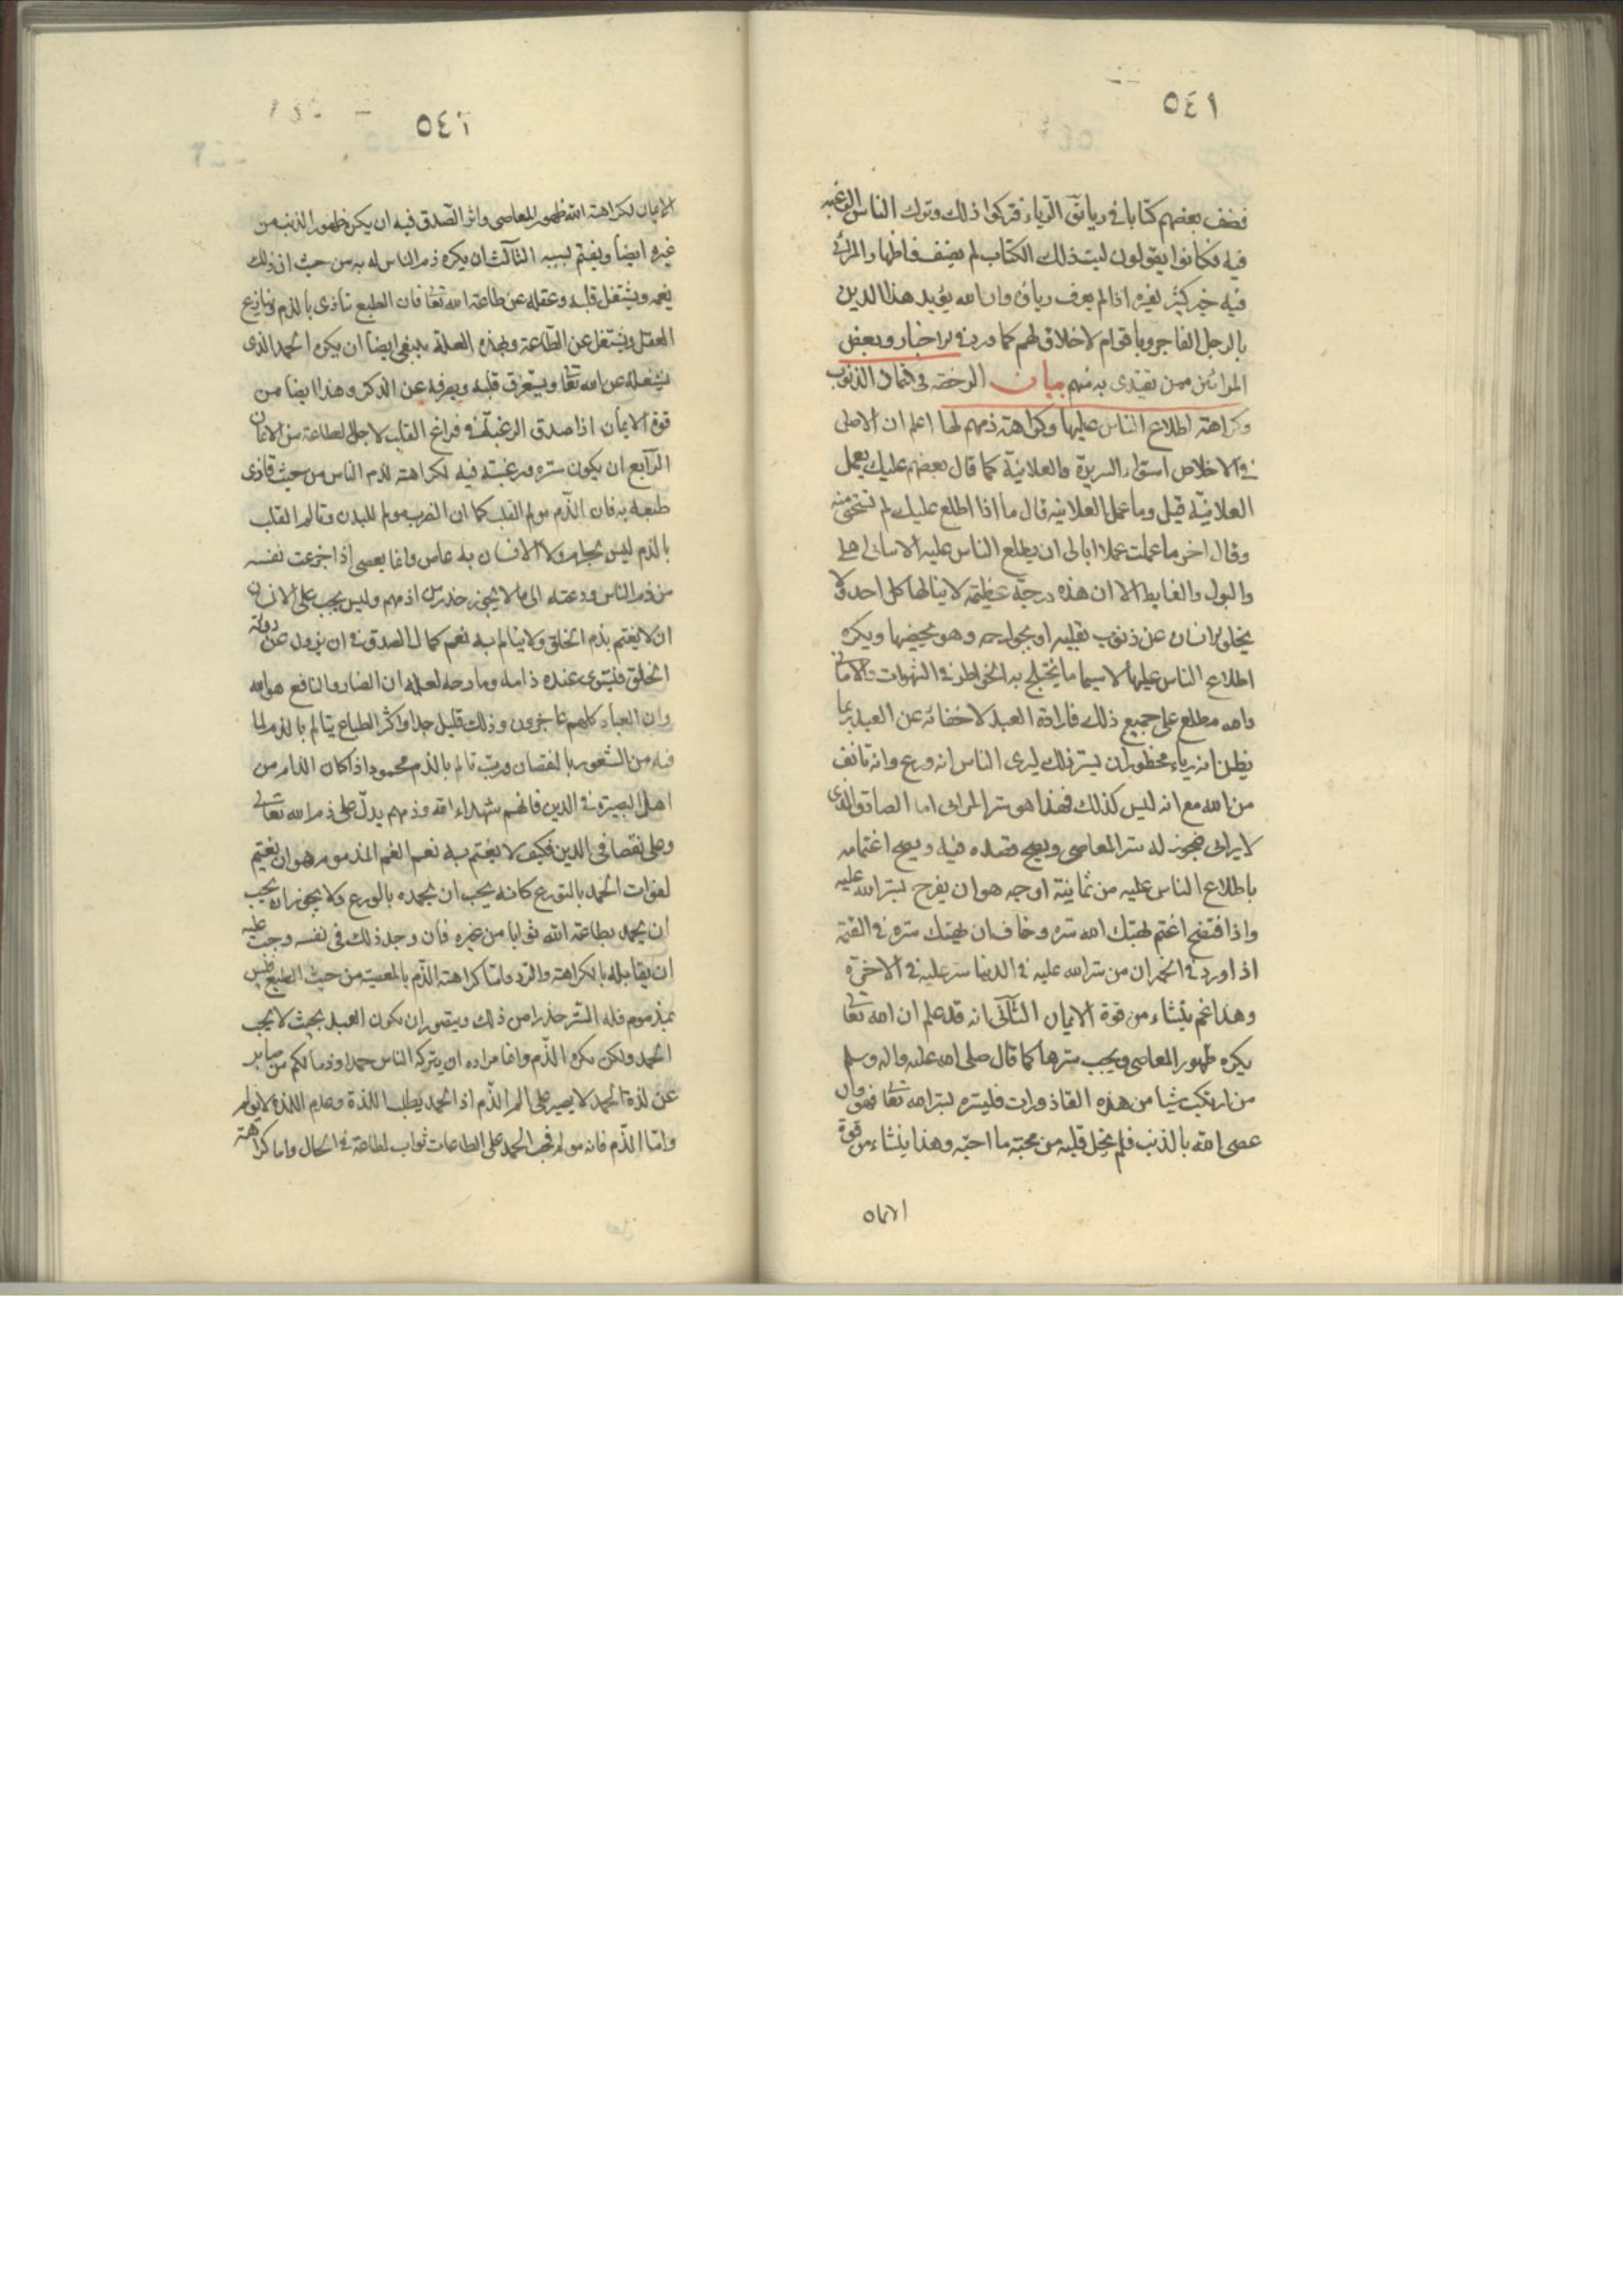 ٥٤١
فصنف بعضهم كتابا في رياتق الرياء فتركوا ذلك وترك الناس الرغبة
فيه فكانوا يقولون ليت ذلك الكتاب لم يصنف فاظهار المرائى
فيه خير كثير لغيره اذا لم يعرف رياؤه وان الله يؤيد هذا الدين
بالرجل الفاجر وباقوام لاخلاق لهم كما ورد في الاخبار وبعض
المرائين ممن يقتدى به منهم بيان الرخصة في كتمان الذنوب
وكراهة اطلاع الناس عليها وكراهة ذمهم لها اعلم ان الاصل
في الاخلاص استواء السريرة والعلانية كما قال بعضهم عليك بعمل
العلانية قيل وما عمل العلانية قال ما اذا اطلع عليك لم تستحى منه
وقال اخر ما عملت عملا ابالى ان يطلع الناس عليه الا اتيانى اهلى
والبول والغايط الا ان هذه درجة عظيمة لا ينالها كل احد ولا
يخلى الانسان عن ذنوب بقلبه او بجوارحه وهو يخفيها ويكره
اطلاع الناس عليها لاسيما ما يختلج به الخواطر في الشهوات والامانى
والله مطلع على جميع ذلك فارادة العبد لاخفائه عن العبيد ربما
يظن انه رياء محظور ان يستر ذلك ليرى الناس انه ورع وانه خائف
من الله مع انه ليس كذلك فهذا هو ستر المرائى اما الصادق الذى
لا يرائى فيجوز له ستر المعاصى ويصح قصده فيه ويصح اغتمامه
باطلاع الناس عليه من ثمانية اوجه هو ان يفرح بستر الله عليه
واذا افتضح اغتم لهتك الله ستره وخاف ان يهتك ستره في القيمة
اذ اورد في الخبر ان من ستر الله عليه في الدنيا ستر عليه في الاخرة
وهذا غم ينشاء من قوة الايمان الثانى انه قد علم ان الله تعالى
يكره ظهور المعاصى ويجب سترها كما قال صلى الله عليه واله وسلم
من ارتكب شيا من هذه القاذورات فليستره بستر الله تعالى فهو وان
عصى الله بالذنب فلم يخل قلبه من محبة ما احبه وهذا ينشاء من قوة
الايمان
٥٤٢
الايمان لكراهة الله ظهور المعاصى واثر الصدق فيه ان يكره ظهور الذنب من
غيره ايضا ويغتم بسببه الثالث ان يكره ذم الناس له به من حيث ان ذلك
يغمه ويشتغل قلبه وعقله عن طاعة الله تعالى فان الطبع يتاذى بالذم وينازع
العقل ويشتغل عن الطاعة وبهذه العلة ينبغى ايضا ان يكره الحمد الذى
يشغله عن الله تعالى ويستغرق قلبه ويصرفه عن الذكر وهذا ايضا من
قوة الايمان اذا صدق الرغبة في فراغ القلب لاجل الطاعة من الايمان
الرابع ان يكون ستره ورغبته فيه لكراهته لذم الناس من حيث يتاذى
طبعه به فان الذم مولم القلب كما ان الضرب مولم للبدن وتالم القلب
بالذم ليس بحرام ولا الانسان به عاص وانما يعصى اذا جزعت نفسه
من ذم الناس ودعته الى ما لا يجوز حذرا من ذمهم وليس يجب على الانسان
ان لا يغتم بذم الخلق ولا يتالم به نعم كمال الصدق في ان يزول عن رؤيته
الخلق فيستوى عنده ذامه ومادحه لعلمه ان الضار والنافع هو الله
وان العباد كلهم عاجزون وذلك قليل جدا واكثر الطباع يتالم بالذم لما
فيه من الشعور بالنقصان ورب تالم بالذم محمود اذا كان الذام من
اهل البصيرة في الدين فانهم شهداء الله وذمهم يدل على ذم الله تعالى
وعلى نقصان في الدين فكيف لا يغتم به نعم الغم المذموم هو ان يغتم
لفوات الحمد بالتورع كانه يجب ان يحمده بالورع ولا يجوز ان يحب
ان يحمد بطاعة الله ثوابا من غيره فان وجد ذلك في نفسه وجب عليه
ان يقابله بالكراهة والرد واما كراهة الذم بالمعصية من حيث الطبع فليس
بمذموم فله الستر حذرا من ذلك ويتصور ان يكون العبد بحيث لا يحب
الحمد ولكن يكره الذم وانما مراده ان يتركه الناس حمدا وذما فكم من صابر
عن لذة الحمد لا يصبر على الم الذم اذ الحمد يطلب اللذة وعدم اللذة لا يولم
واما الذم فانه مولم فحب الحمد على الطاعات ثواب لطاعة في الحال واما كراهة